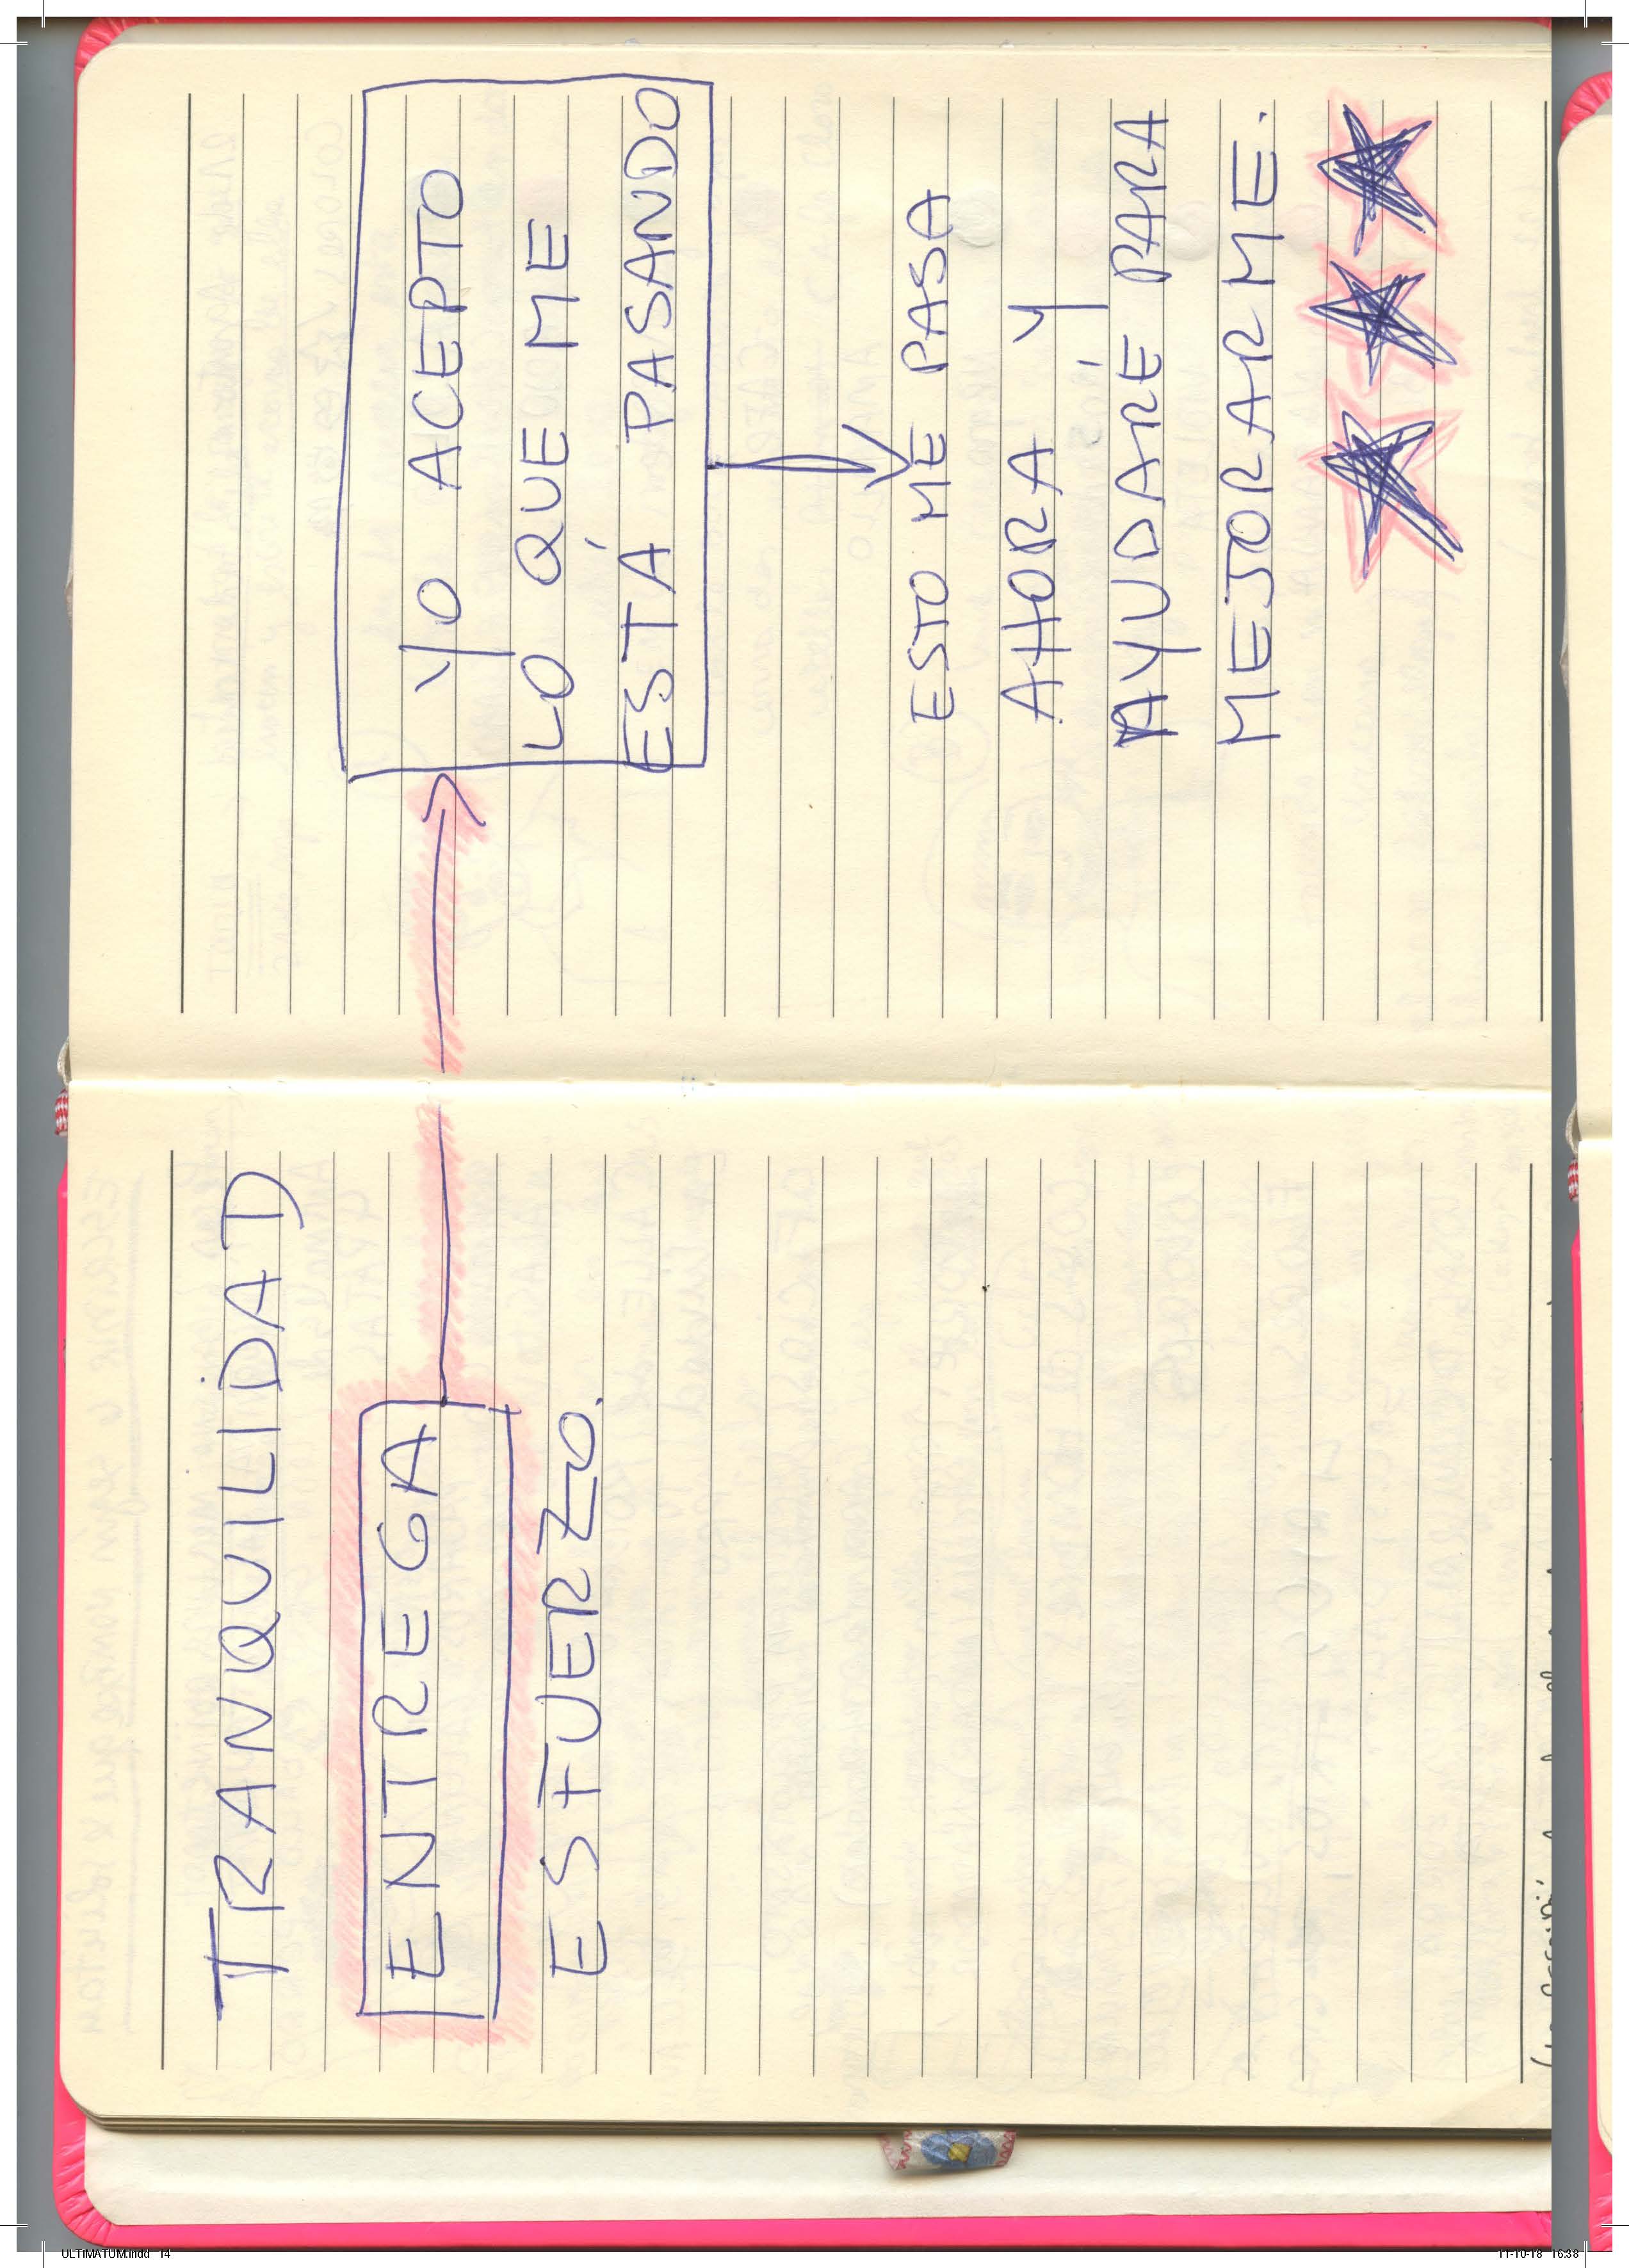 TRANQUILIDAD
ENTREGA
ESFUERZO.
YO ACEPTO
LO QUE ME
ESTÁ PASANDO
ESTO ME PASA
AHORA Y
AYUDARÉ PARA
MEJORARME.
ULTIMATUM.indd 14
11-10-18 16:38